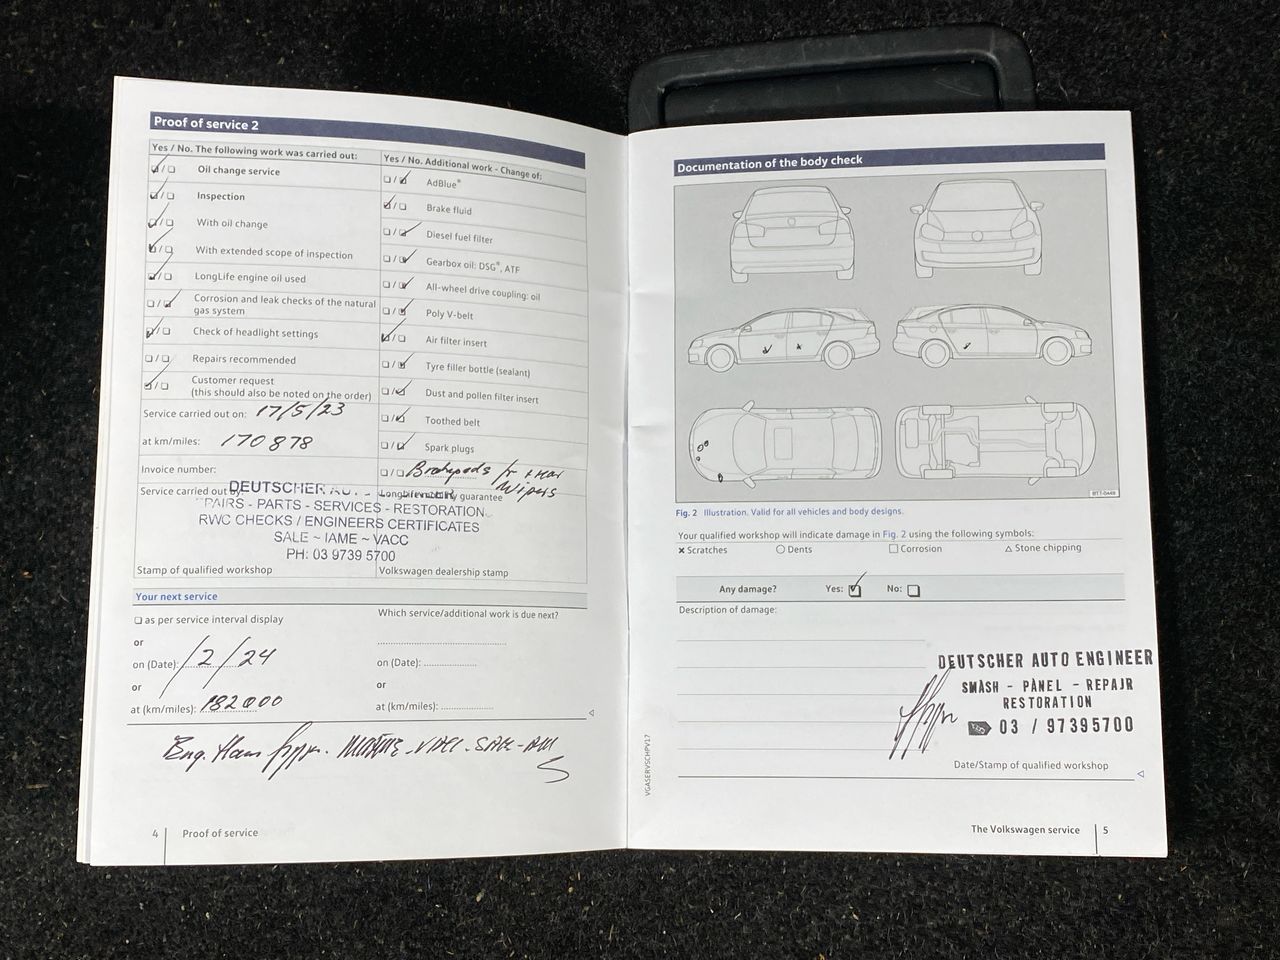 Proof of service 2
Yes / No. The following work was carried out:
☑/☐ Oil change service
☑/☐ Inspection
☑/☐ With oil change
☑/☐ With extended scope of inspection
☑/☐ LongLife engine oil used
☐/☑ Corrosion and leak checks of the natural
gas system
☑/☐ Check of headlight settings
☐/☐ Repairs recommended
☑/☐ Customer request
(this should also be noted on the order)
Service carried out on: 17/5/23
at km/miles: 170878
Invoice number:
Service carried out by:
Yes / No. Additional work - Change of:
☐/☑ AdBlue®
☑/☐ Brake fluid
☐/☑ Diesel fuel filter
☐/☑ Gearbox oil: DSG®, ATF
☐/☑ All-wheel drive coupling: oil
☐/☑ Poly V-belt
☑/☐ Air filter insert
☐/☑ Tyre filler bottle (sealant)
☐/☑ Dust and pollen filter insert
☐/☑ Toothed belt
☐/☑ Spark plugs
☐/☐ Brakepads fr + rear
Wipers
guarantee
DEUTSCHER
PAIRS - PARTS - SERVICES - RESTORATION
RWC CHECKS / ENGINEERS CERTIFICATES
SALE ~ IAME ~ VACC
PH: 03 9739 5700
Stamp of qualified workshop
Volkswagen dealership stamp
Your next service
☐ as per service interval display
or
on (Date): /2/24
or
at (km/miles): 182000
Which service/additional work is due next?
on (Date):
or
at (km/miles):
Eng. Hans
4 Proof of service
Documentation of the body check
BTT-0449
Fig. 2 Illustration. Valid for all vehicles and body designs.
Your qualified workshop will indicate damage in Fig. 2 using the following symbols:
✖ Scratches ○ Dents ☐ Corrosion △ Stone chipping
Any damage? Yes: ☑ No: ☐
Description of damage:
DEUTSCHER AUTO ENGINEER
SMASH - PANEL - REPAIR
RESTORATION
03 / 97395700
Date/Stamp of qualified workshop
VGASERVSCHPV17
The Volkswagen service 5